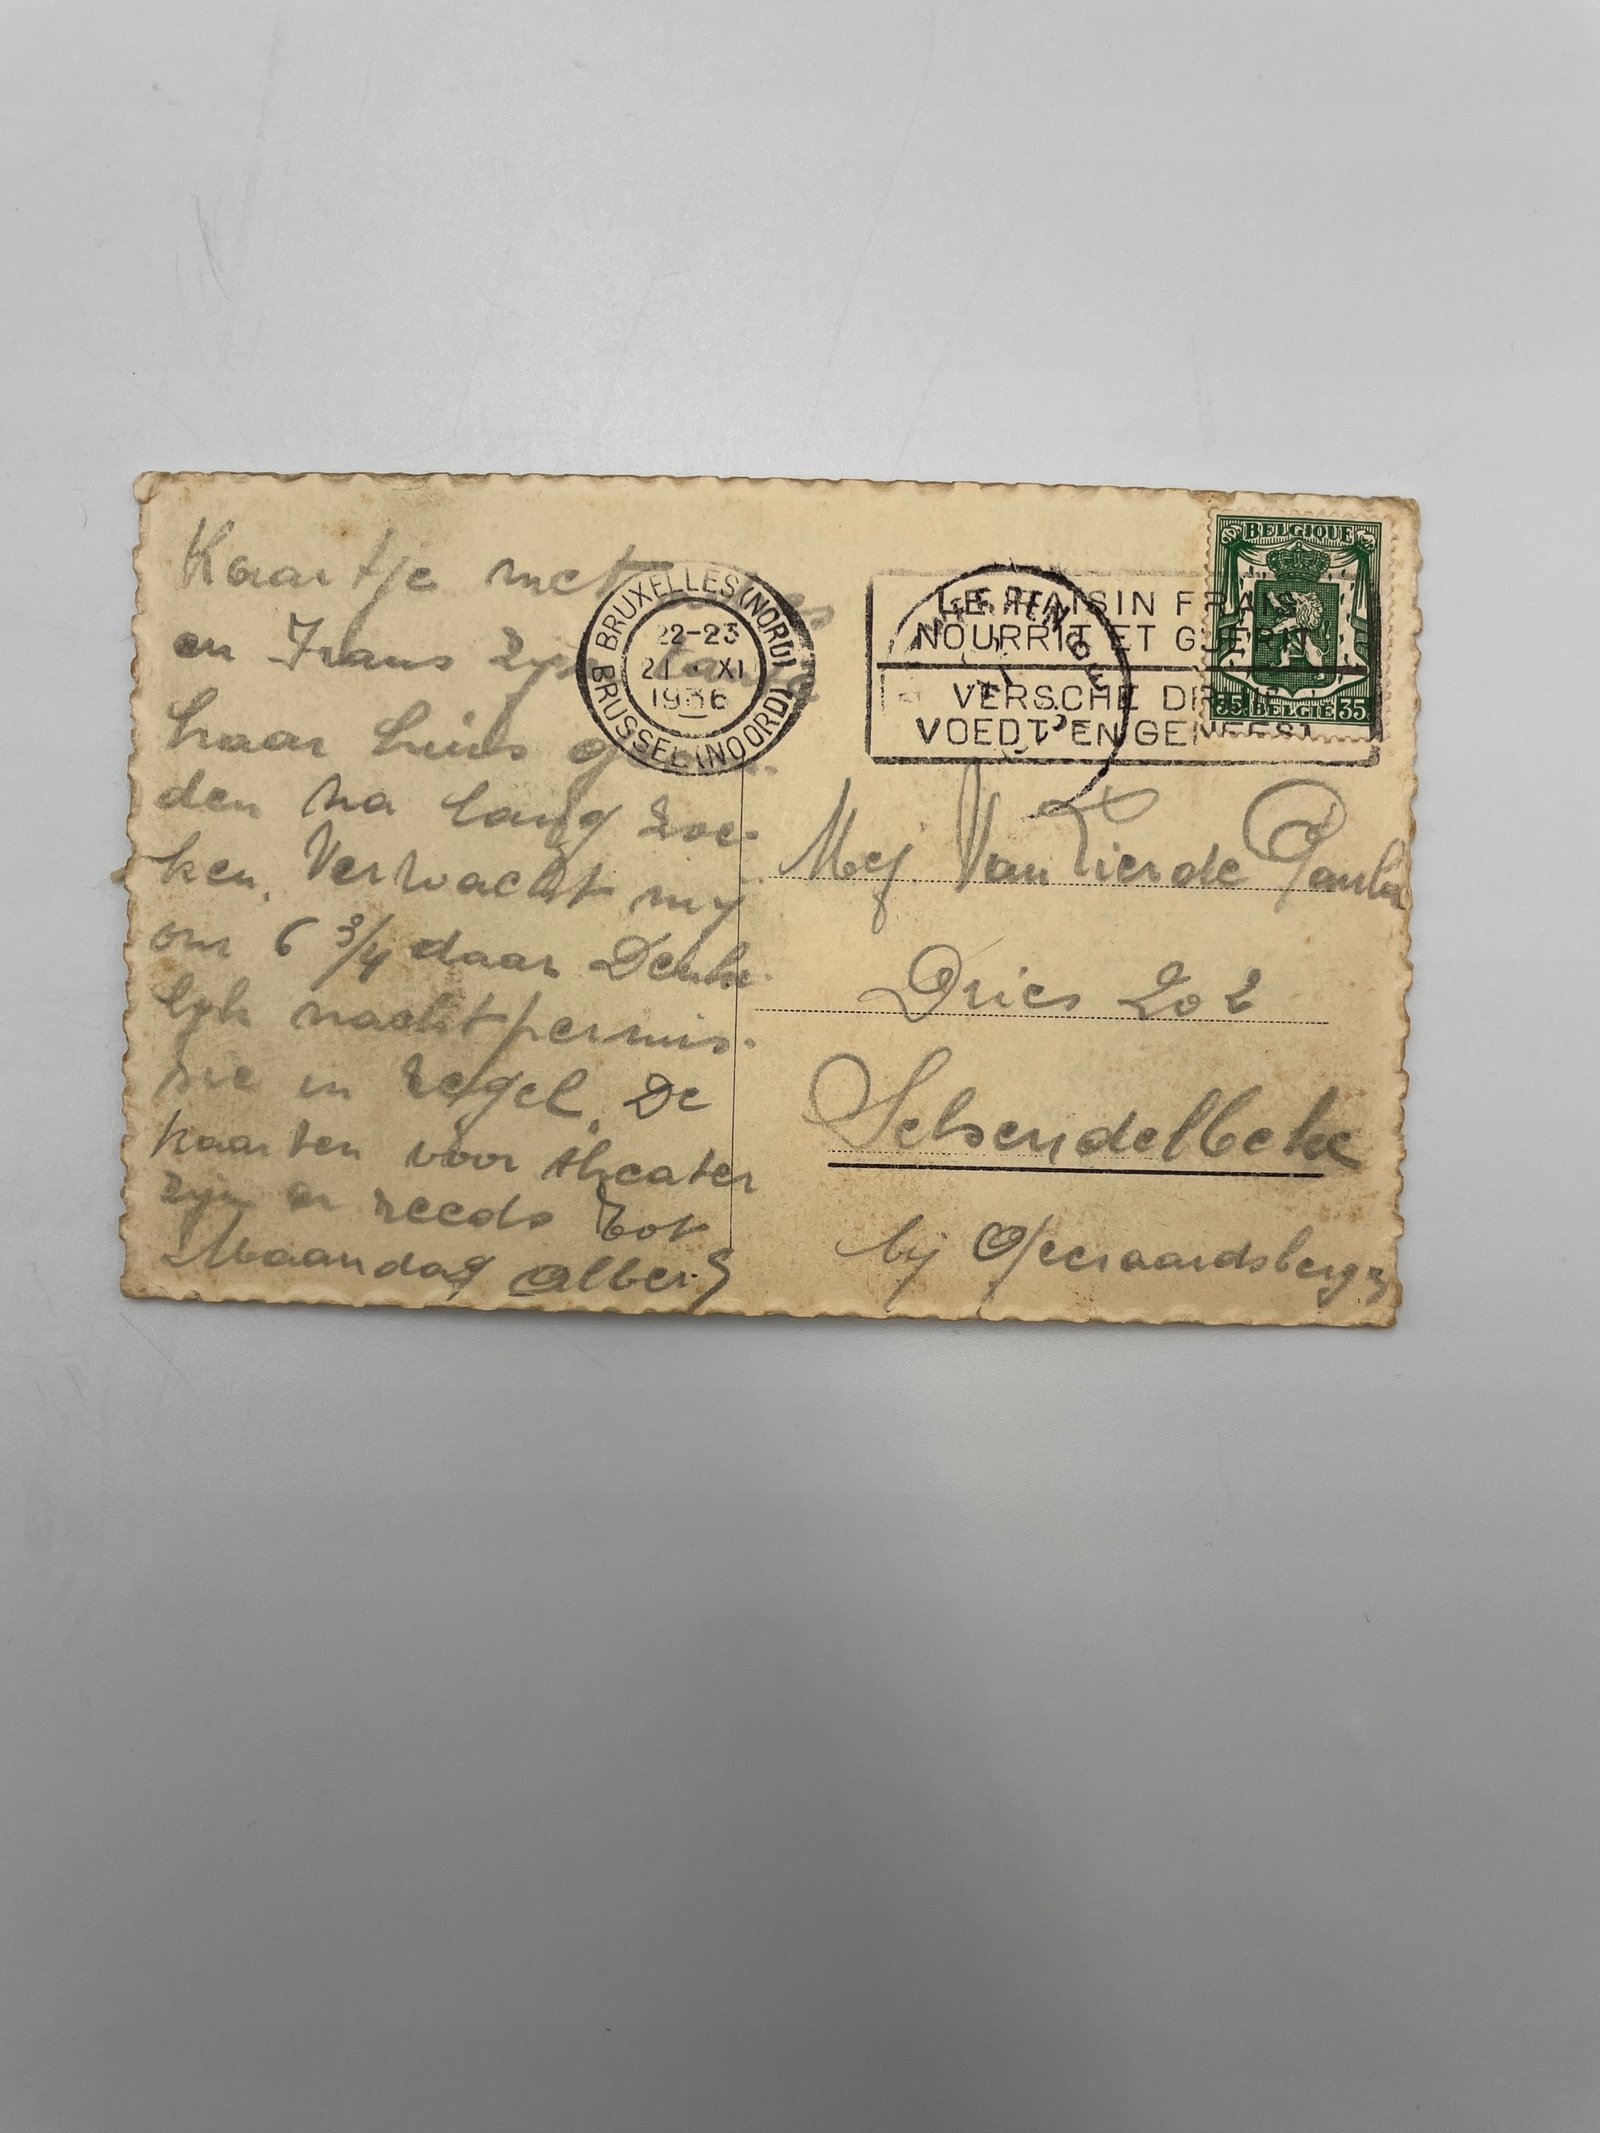 Kaartje met
en Frans zijn
haar huis
den na lang zoe-
ken. Verwacht mij
om 6 3/4 daar Denke-
lijk nachtpermis-
sie in regel. De
kaarten voor theater
zijn er reeds tot
Maandag Albert
BRUXELLES (NORD)
22-23
21 XI
1936
BRUSSEL (NOORD)
LE RAISIN FRAIS
NOURRIT ET GUERIT
VERSCHE
VOEDT EN GENEEST
BELGIQUE
35 BELGIE 35
Mej. Van Lierde Paula
Dries 202
Schendelbeke
bij Geeraardsbergen